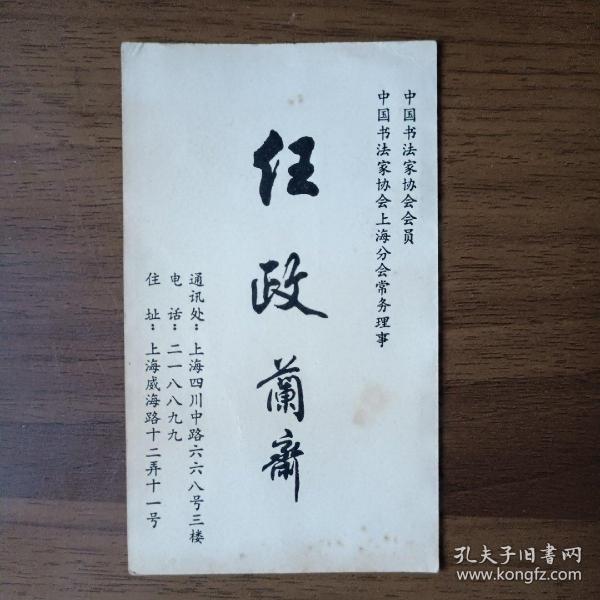 中国书法家协会会员
中国书法家协会上海分会常务理事
任政蘭斋
通讯处：上海四川中路六六八号三楼
电话：二一八八九九
住址：上海威海路十二弄十一号
孔夫子旧书网
www.kongfz.com